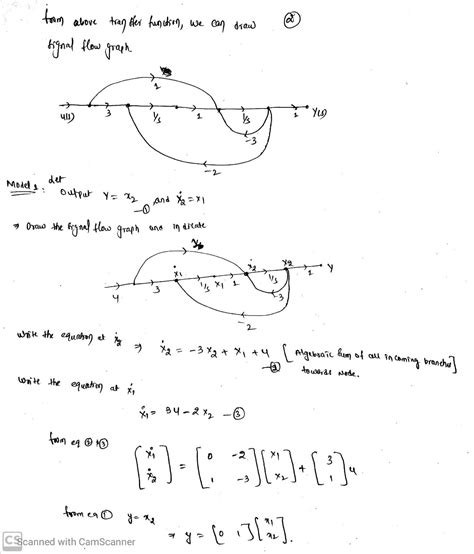 from above transfer function, we can draw
②
signal flow graph.
1
u(s) 3 1/s 1 1/s 1 Y(s)
-3
-2
Model 1: let
output Y = x₂ —① and ẋ₂ = x₁
⇒ Draw the signal flow graph and indicate
ẋ₁ ẋ₂ x₂ Y
u 3 1/s x₁ 1 1/s 1
-3
-2
write the equation at ẋ₂ ⇒ ẋ₂ = -3x₂ + x₁ + u —② [Algebraic sum of all incoming branches
towards node.]
Write the equation at ẋ₁
ẋ₁ = 3u - 2x₂ —③
from eq ② & ③
[ẋ₁ ẋ₂] = [0 -2 1 -3] [x₁ x₂] + [3 1] u
from eq ① y = x₂
⇒ y = [0 1] [x₁ x₂].
CS Scanned with CamScanner